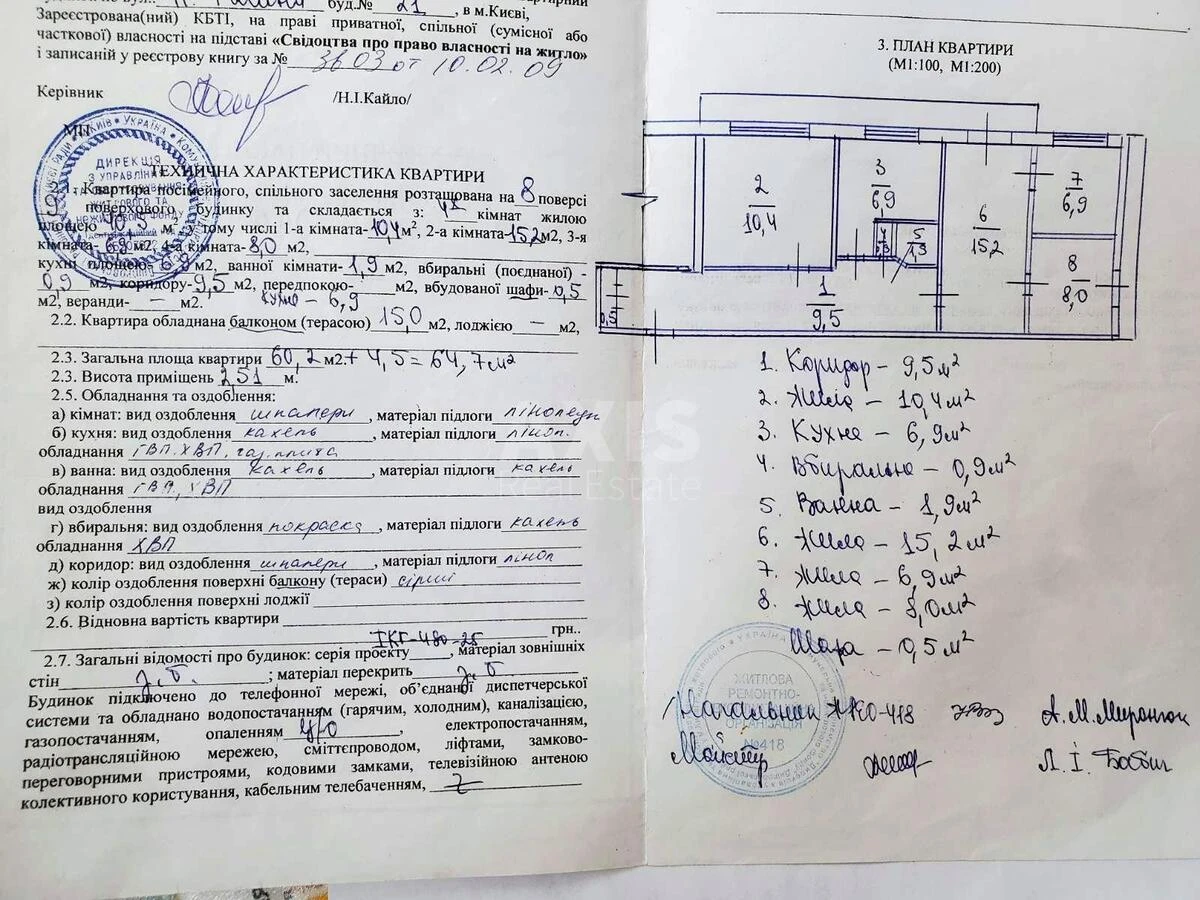 буд.№ 21, в м.Києві,
Зареєстрована(ний) КБТІ, на праві приватної, спільної (сумісної або
часткової) власності на підставі «Свідоцтва про право власності на житло»
і записаній у реєстрову книгу за № 3603 от 10.02.09
Керівник /Н.І.Кайло/
МП
ТЕХНІЧНА ХАРАКТЕРИСТИКА КВАРТИРИ
Квартира посімейного, спільного заселення розташована на 8 поверсі
поверхового будинку та складається з: 4х кімнат жилою
площею 40,5 м², у тому числі 1-а кімната-10,4м², 2-а кімната-15,2м2, 3-я
кімната- 6,9 м2, 4-а кімната-8,0 м2,
кухні площею-6,9 м2, ванної кімнати-1,9м2, вбиральні (поєднаної) -
0,9 м2, коридору-9,5м2, передпокою- м2, вбудованої шафи-0,5
м2, веранди- — м2. кухню – 6,9
2.2. Квартира обладнана балконом (терасою) 15,0 м2, лоджією — м2,
2.3. Загальна площа квартири 60,2 м2.+ 4,5 = 64,7м²
2.3. Висота приміщень 2,51 м.
2.5. Обладнання та оздоблення:
а) кімнат: вид оздоблення шпалери, матеріал підлоги лінолеум
б) кухня: вид оздоблення кахель, матеріал підлоги лінол.
обладнання ГВП. ХВП, газ.плита
в) ванна: вид оздоблення кахель, матеріал підлоги кахель
обладнання ГВП, ХВП
вид оздоблення
г) вбиральня: вид оздоблення покраска, матеріал підлоги кахель
обладнання ХВП
д) коридор: вид оздоблення шпалери, матеріал підлоги лінол
ж) колір оздоблення поверхні балкону (тераси) сірий
з) колір оздоблення поверхні лоджії
2.6. Відновна вартість квартири
грн..
2.7. Загальні відомості про будинок: серія проекту 1КГ-480-25, матеріал зовнішніх
стін з.б. ; матеріал перекрить з.б
Будинок підключено до телефонної мережі, об’єднаної диспетчерської
системи та обладнано водопостачання (гарячим, холодним), каналізацією,
газопостачанням, опаленням ц/о, електропостачанням,
радіотрансляційною мережею, сміттєпроводом, ліфтами, замково-
переговорними пристроями, кодовими замками, телевізійною антеною
колективного користування, кабельним телебаченням,
3. ПЛАН КВАРТИРИ
(М1:100, М1:200)
2
10,4
3
6,9
4
5
1,9
6
15,2
7
6,9
8
8,0
1
9,5
0,5
1. Коридор – 9,5м²
2. Жила – 10,4м²
3. Кухня – 6,9м²
4. Вбиральня – 0,9м²
5. Ванна – 1,9м²
6. Жила – 15,2м²
7. Жила – 6,9м²
8. Жила – 8,0м²
Шафа – 0,5м²
ЖИТЛОВА
РЕМОНТНО-
ОРГАНІЗАЦІЯ
№418
Начальник ЖЕО-418 А.М.Миронюк
Майстер Л.І. Бабич
ДИРЕКЦІЯ
З УПРАВЛІННЯ
ЖИТЛОВОГО ТА
НЕЖИТЛОВОГО ФОНДУ
AXIS
Real Estate